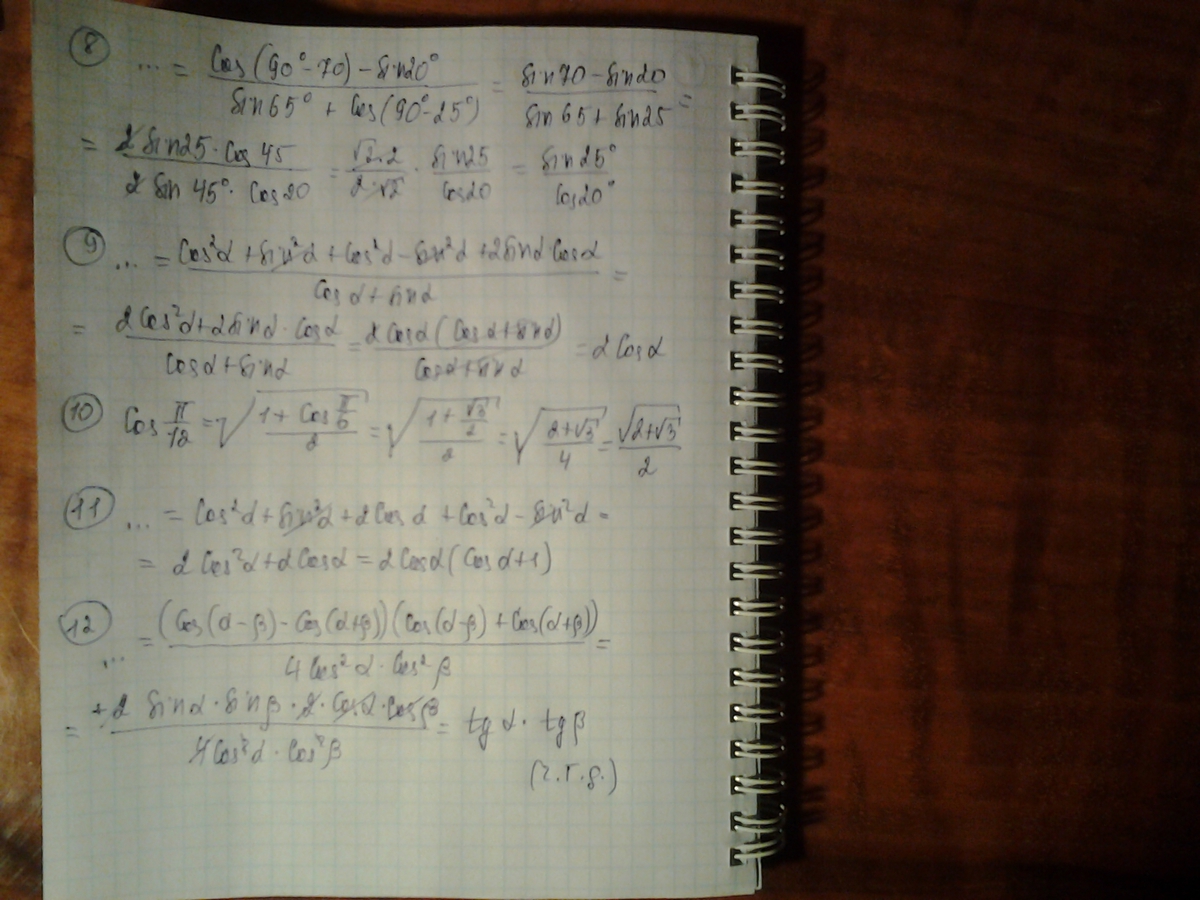 8 ... = (Cos(90°-70) - Sin20°)/(Sin65° + Cos(90°-25°)) = (Sin70 - Sin20)/(Sin65 + Sin25) =
= (2 Sin25 · Cos45)/(2 Sin45° · Cos20) = (√2·2)/(2·√2) · Sin25/Cos20 = Sin25°/Cos20°
9 ... = (Cos²α + Sin²α + Cos²α - Sin²α + 2Sinα Cosα)/(Cosα + Sinα) =
= (2Cos²α + 2Sinα · Cosα)/(Cosα + Sinα) = (2Cosα(Cosα + Sinα))/(Cosα + Sinα) = 2Cosα
10 Cos π/12 = √((1 + Cos π/6)/2) = √((1 + √3/2)/2) = √((2+√3)/4) = √(2+√3)/2
11 ... = Cos²α + Sin²α + 2Cosα + Cos²α - Sin²α =
= 2Cos²α + 2Cosα = 2Cosα(Cosα+1)
12 ... = ((Cos(α-β) - Cos(α+β))(Cos(α-β) + Cos(α+β)))/(4Cos²α · Cos²β) =
= (+2 Sinα · Sinβ · 2 · Cosα · Cosβ)/(4Cos²α · Cos²β) = tgα · tgβ
(ч.т.д.)